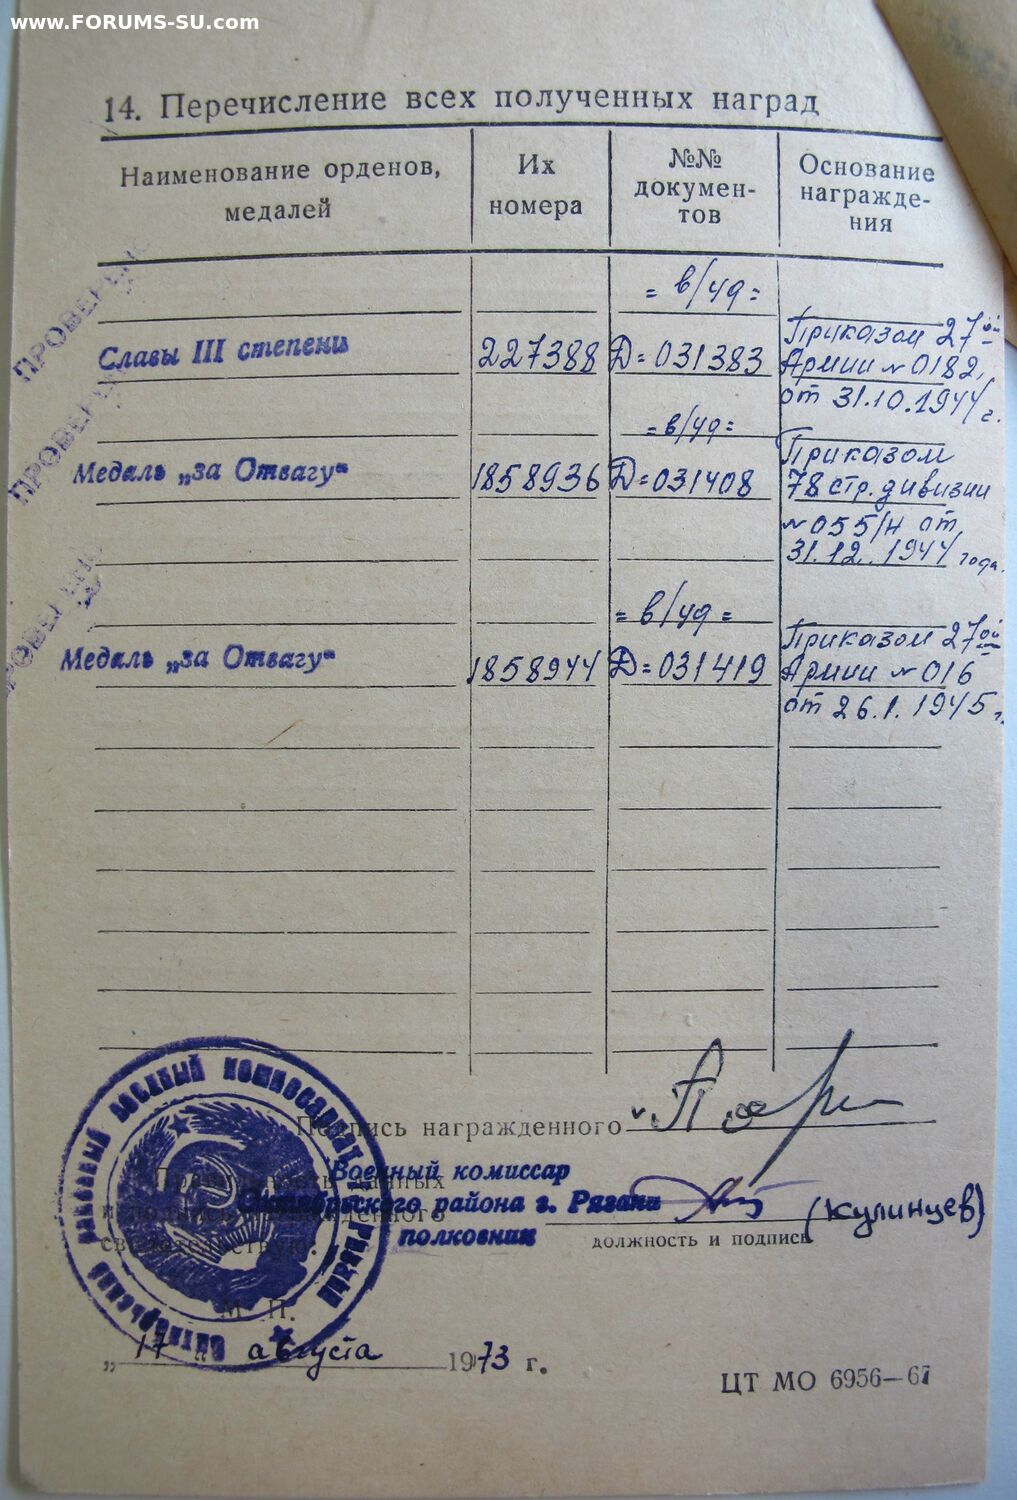 www.FORUMS-SU.com
14. Перечисление всех полученных наград
Наименование орденов, медалей
Их номера
№№ докумен-
тов
Основание
награжде-
ния
ПРОВЕРЕНО
= в/уд =
Славы III степени 227388 Д=031383 Приказом 27ой
Армии №0182,
от 31.10.1944 г.
ПРОВЕРЕНО
= в/уд =
Медаль „за Отвагу“ 1858936 Д=031408 Приказом
78 стр. дивизии
№055/н от
31.12.1944 года.
ПРОВЕРЕНО
= в/уд =
Медаль „за Отвагу“ 1858944 Д=031419 Приказом 27ой
Армии №016
от 26.1.1945 г.
Подпись награжденного
Правильность данных
и подпись награжденного
свидетельствую:
Военный комиссар
Октябрьского района г. Рязани
полковник
(Кулинцев)
должность и подпись
М. П.
Октябрьский районный военный комиссариат г. Рязани
„17“ августа 1973 г.
ЦТ МО 6956—67